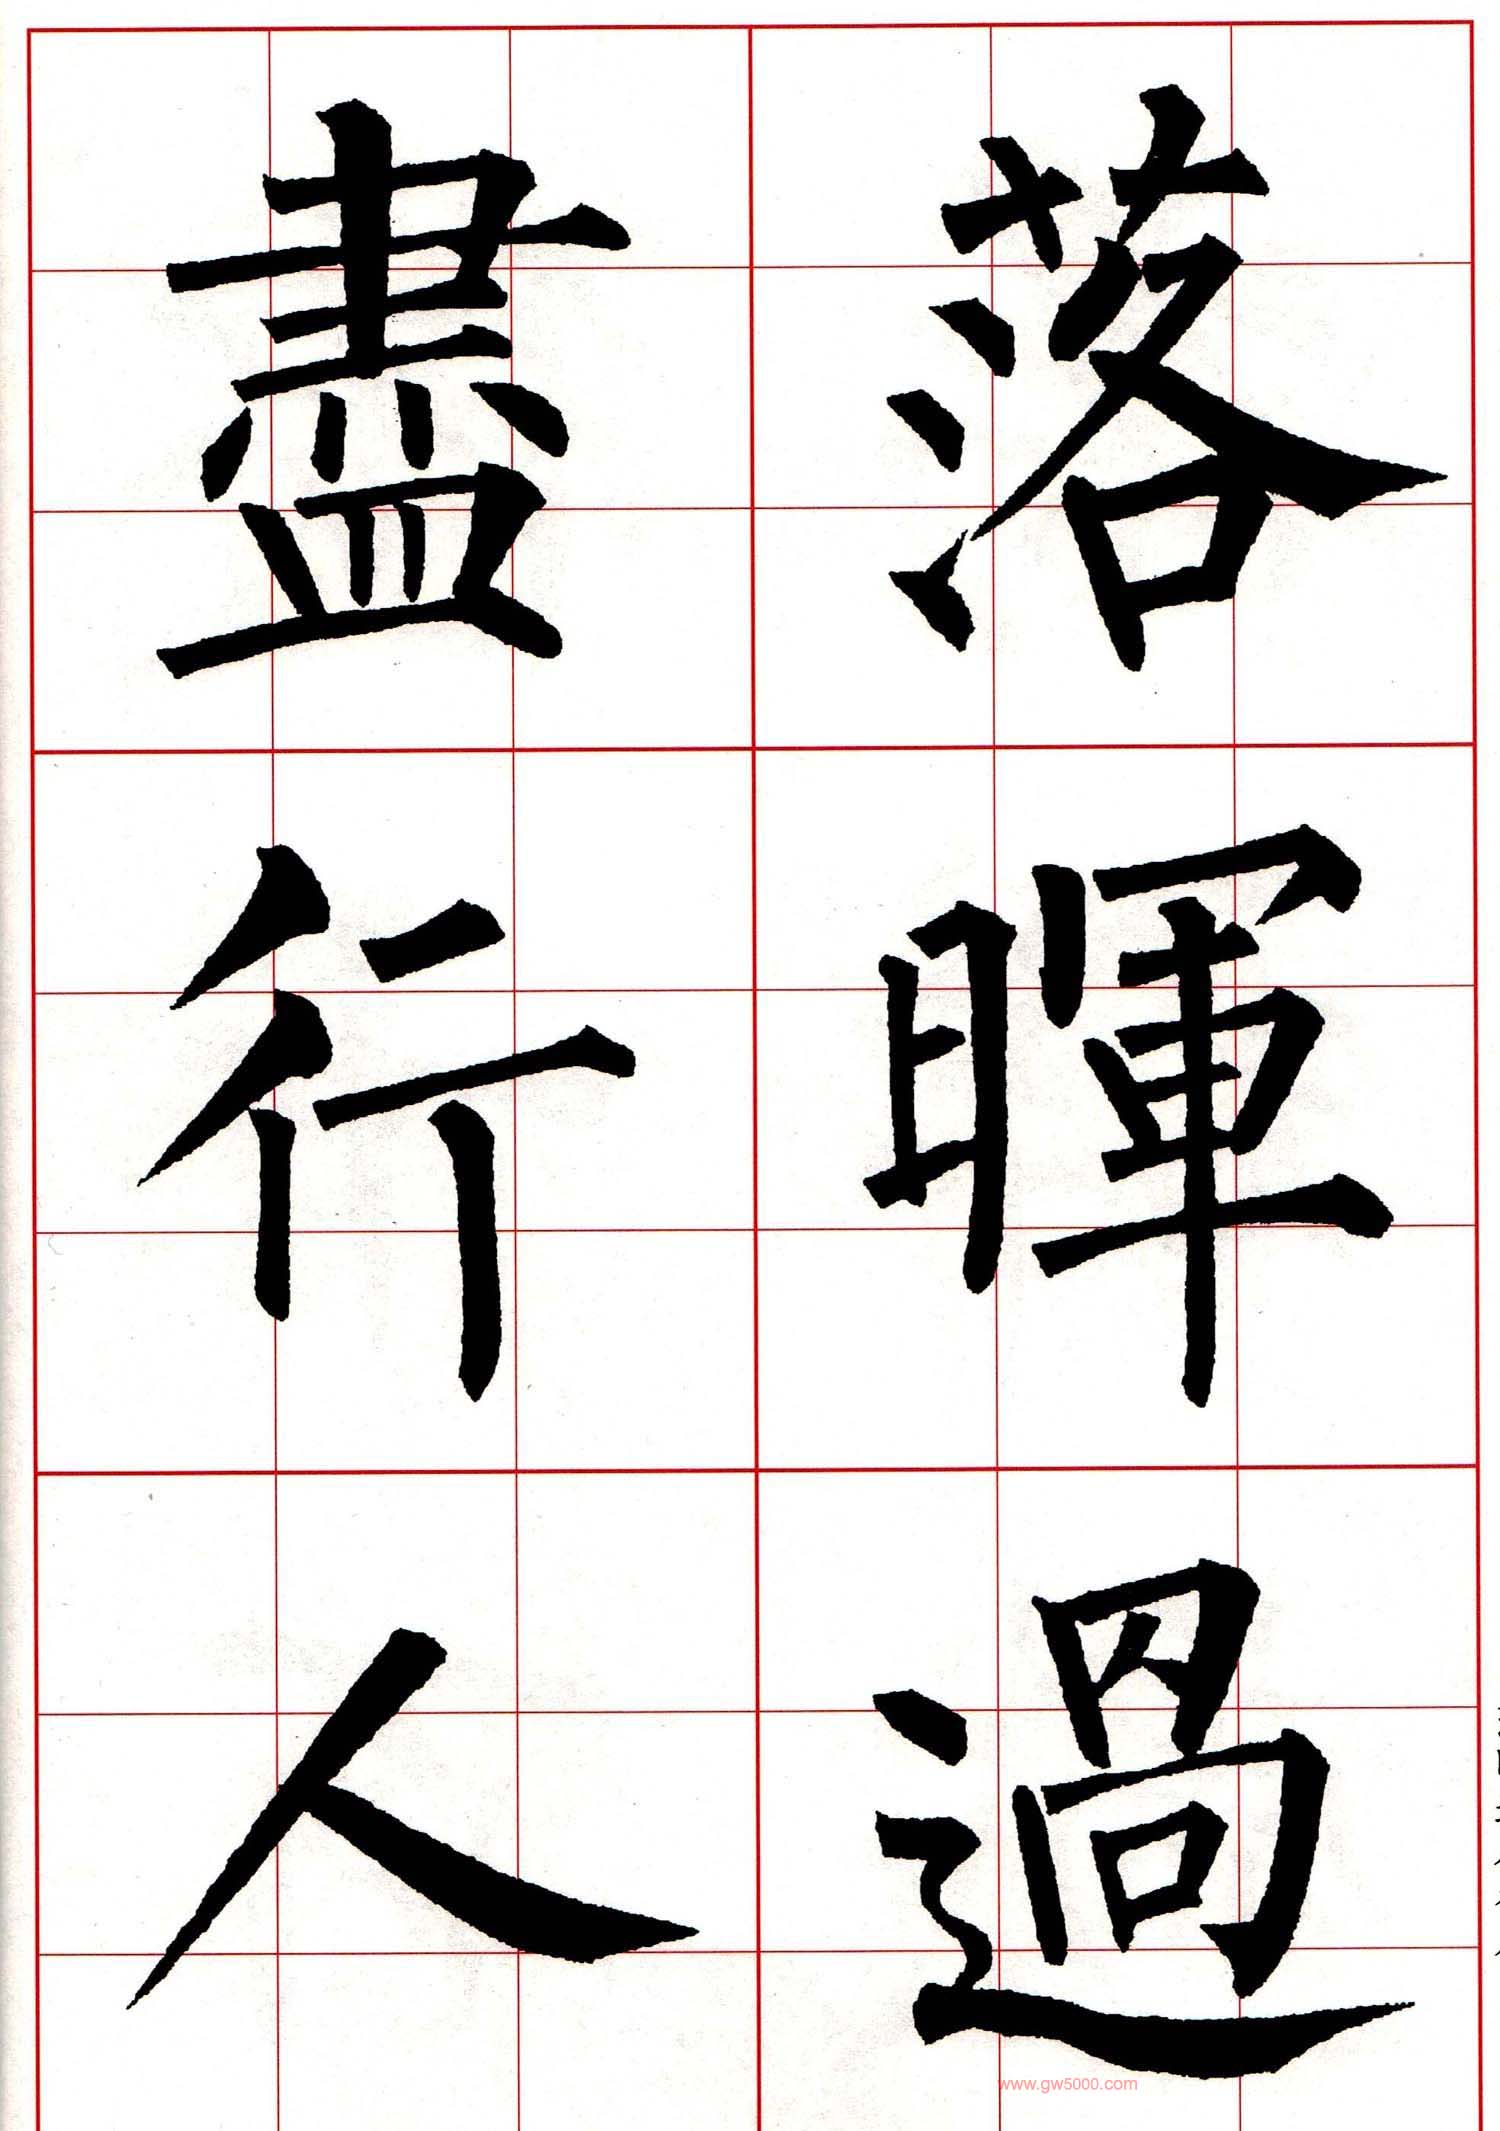 落暉過
盡行人
www.gw5000.com